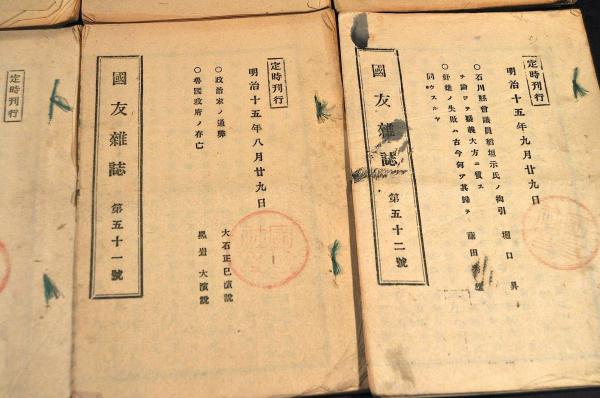 定時刊行
明治十五年九月廿九日
○石川縣會議員稻垣示氏ノ拘引 堀口昇
チ論シテ
大方ニ質ス
失敗ハ古今何ソ其歸チ
同ウスルヤ
國友雜誌 第五十二號
定時刊行
明治十五年八月廿九日
○政治家ノ通弊 大石正巳演說
○魯國政府ノ存亡 黒岩大演說
國友雜誌 第五十一號
定時刊行